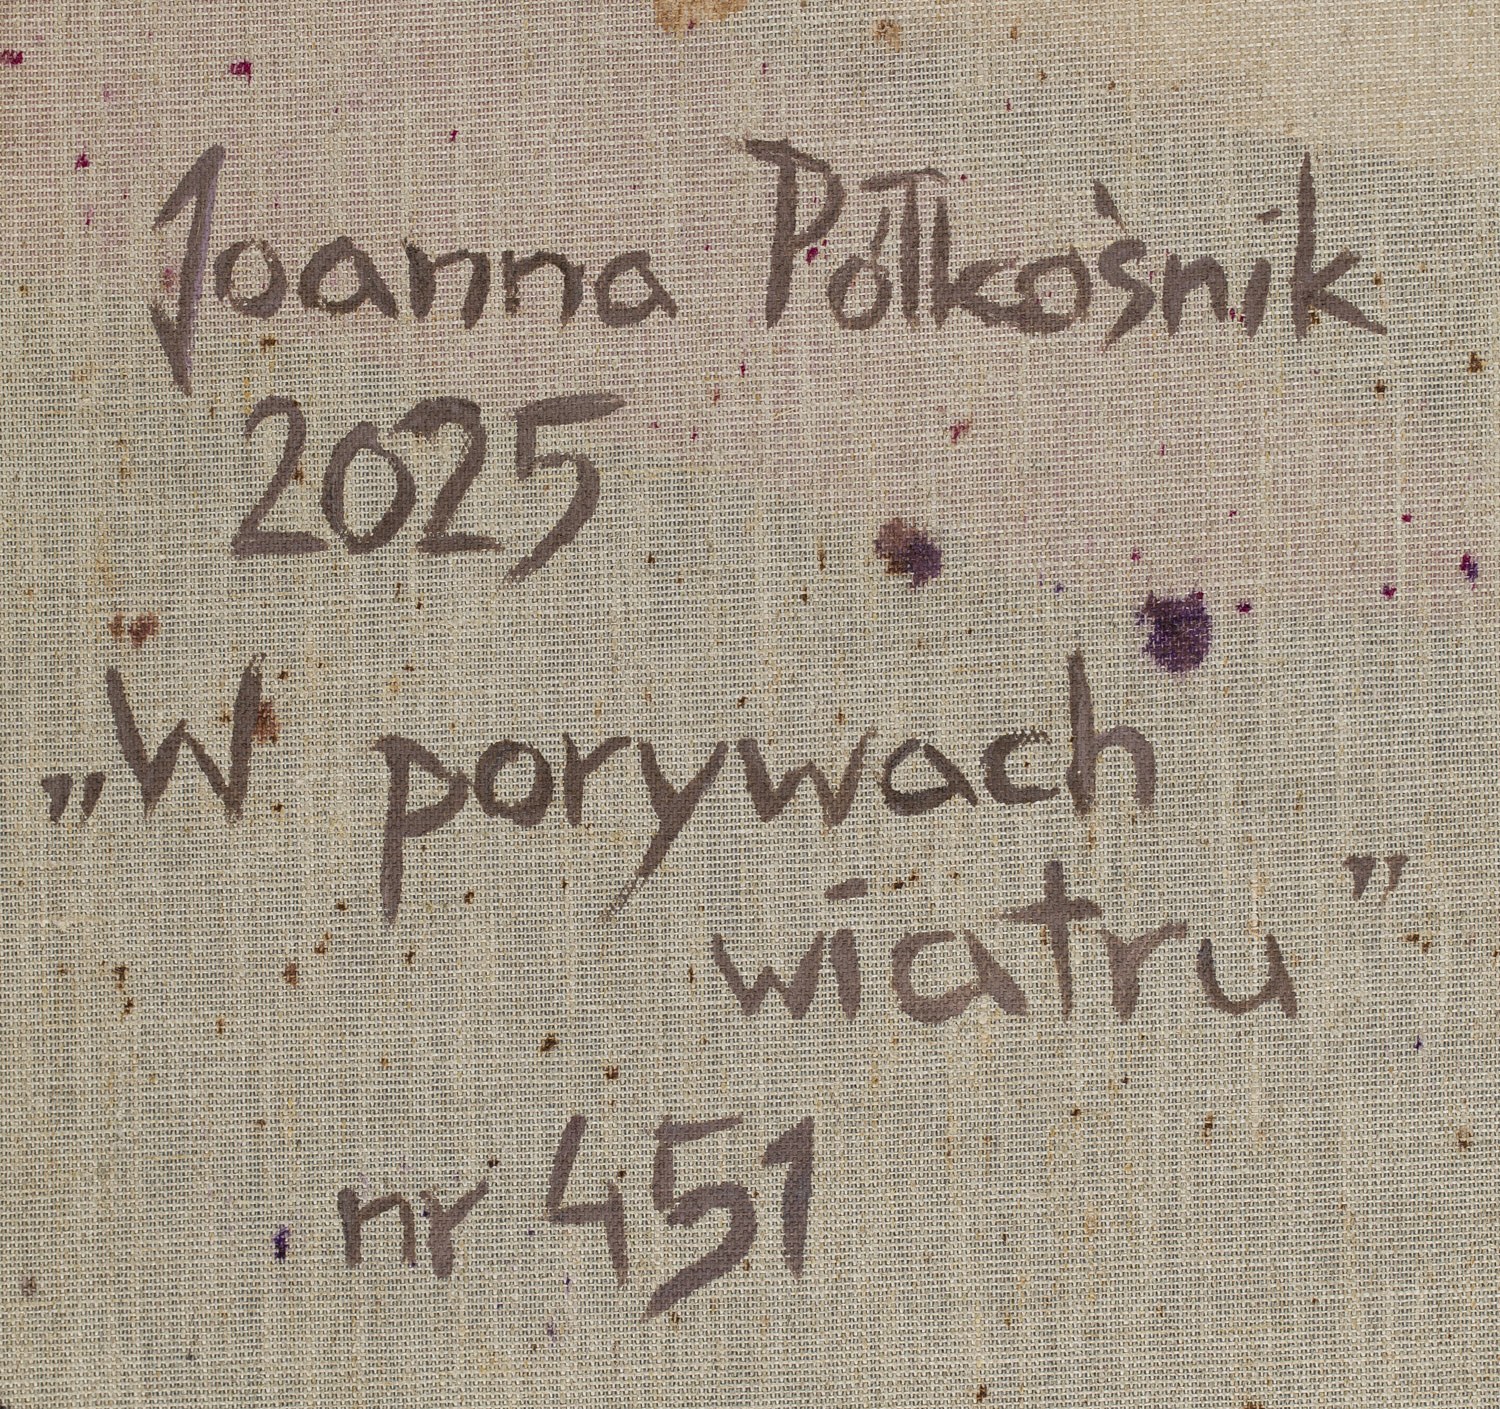 Joanna Półkośnik
2025
„W porywach
wiatru”
nr 451